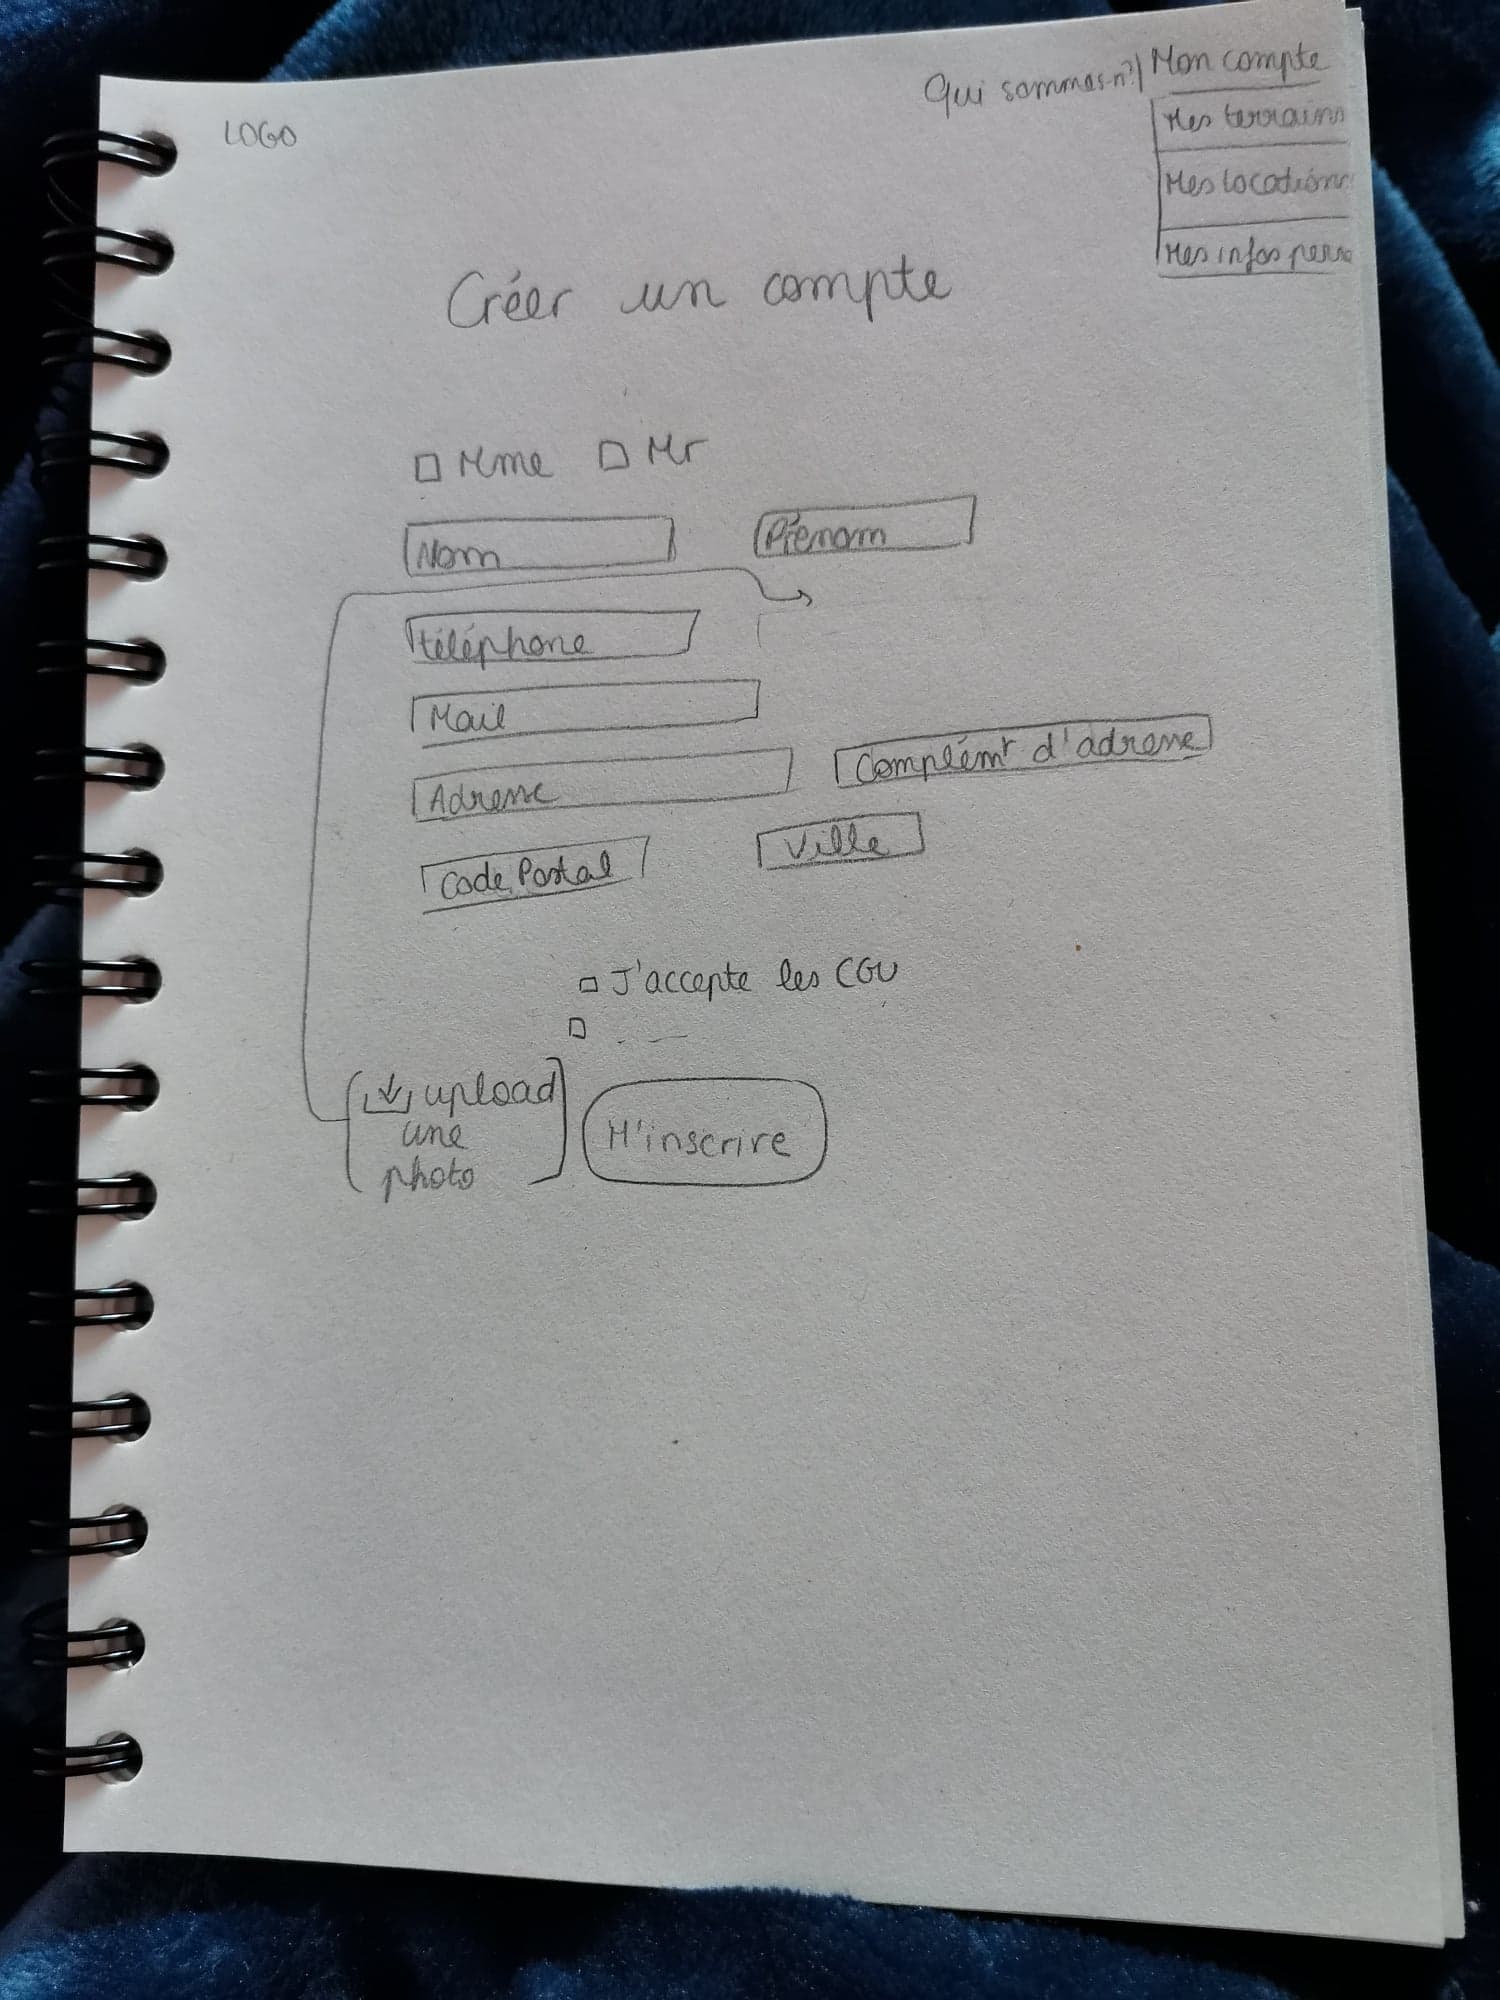 LOGO
Qui sommes-n? | Mon compte
Mes terrains
Mes locations
Mes infos perso
Créer un compte
Mme Mr
Nom Prénom
téléphone
Mail
Adresse Complémt d'adresse
Code Postal Ville
J'accepte les CGU
upload
une
photo
M'inscrire